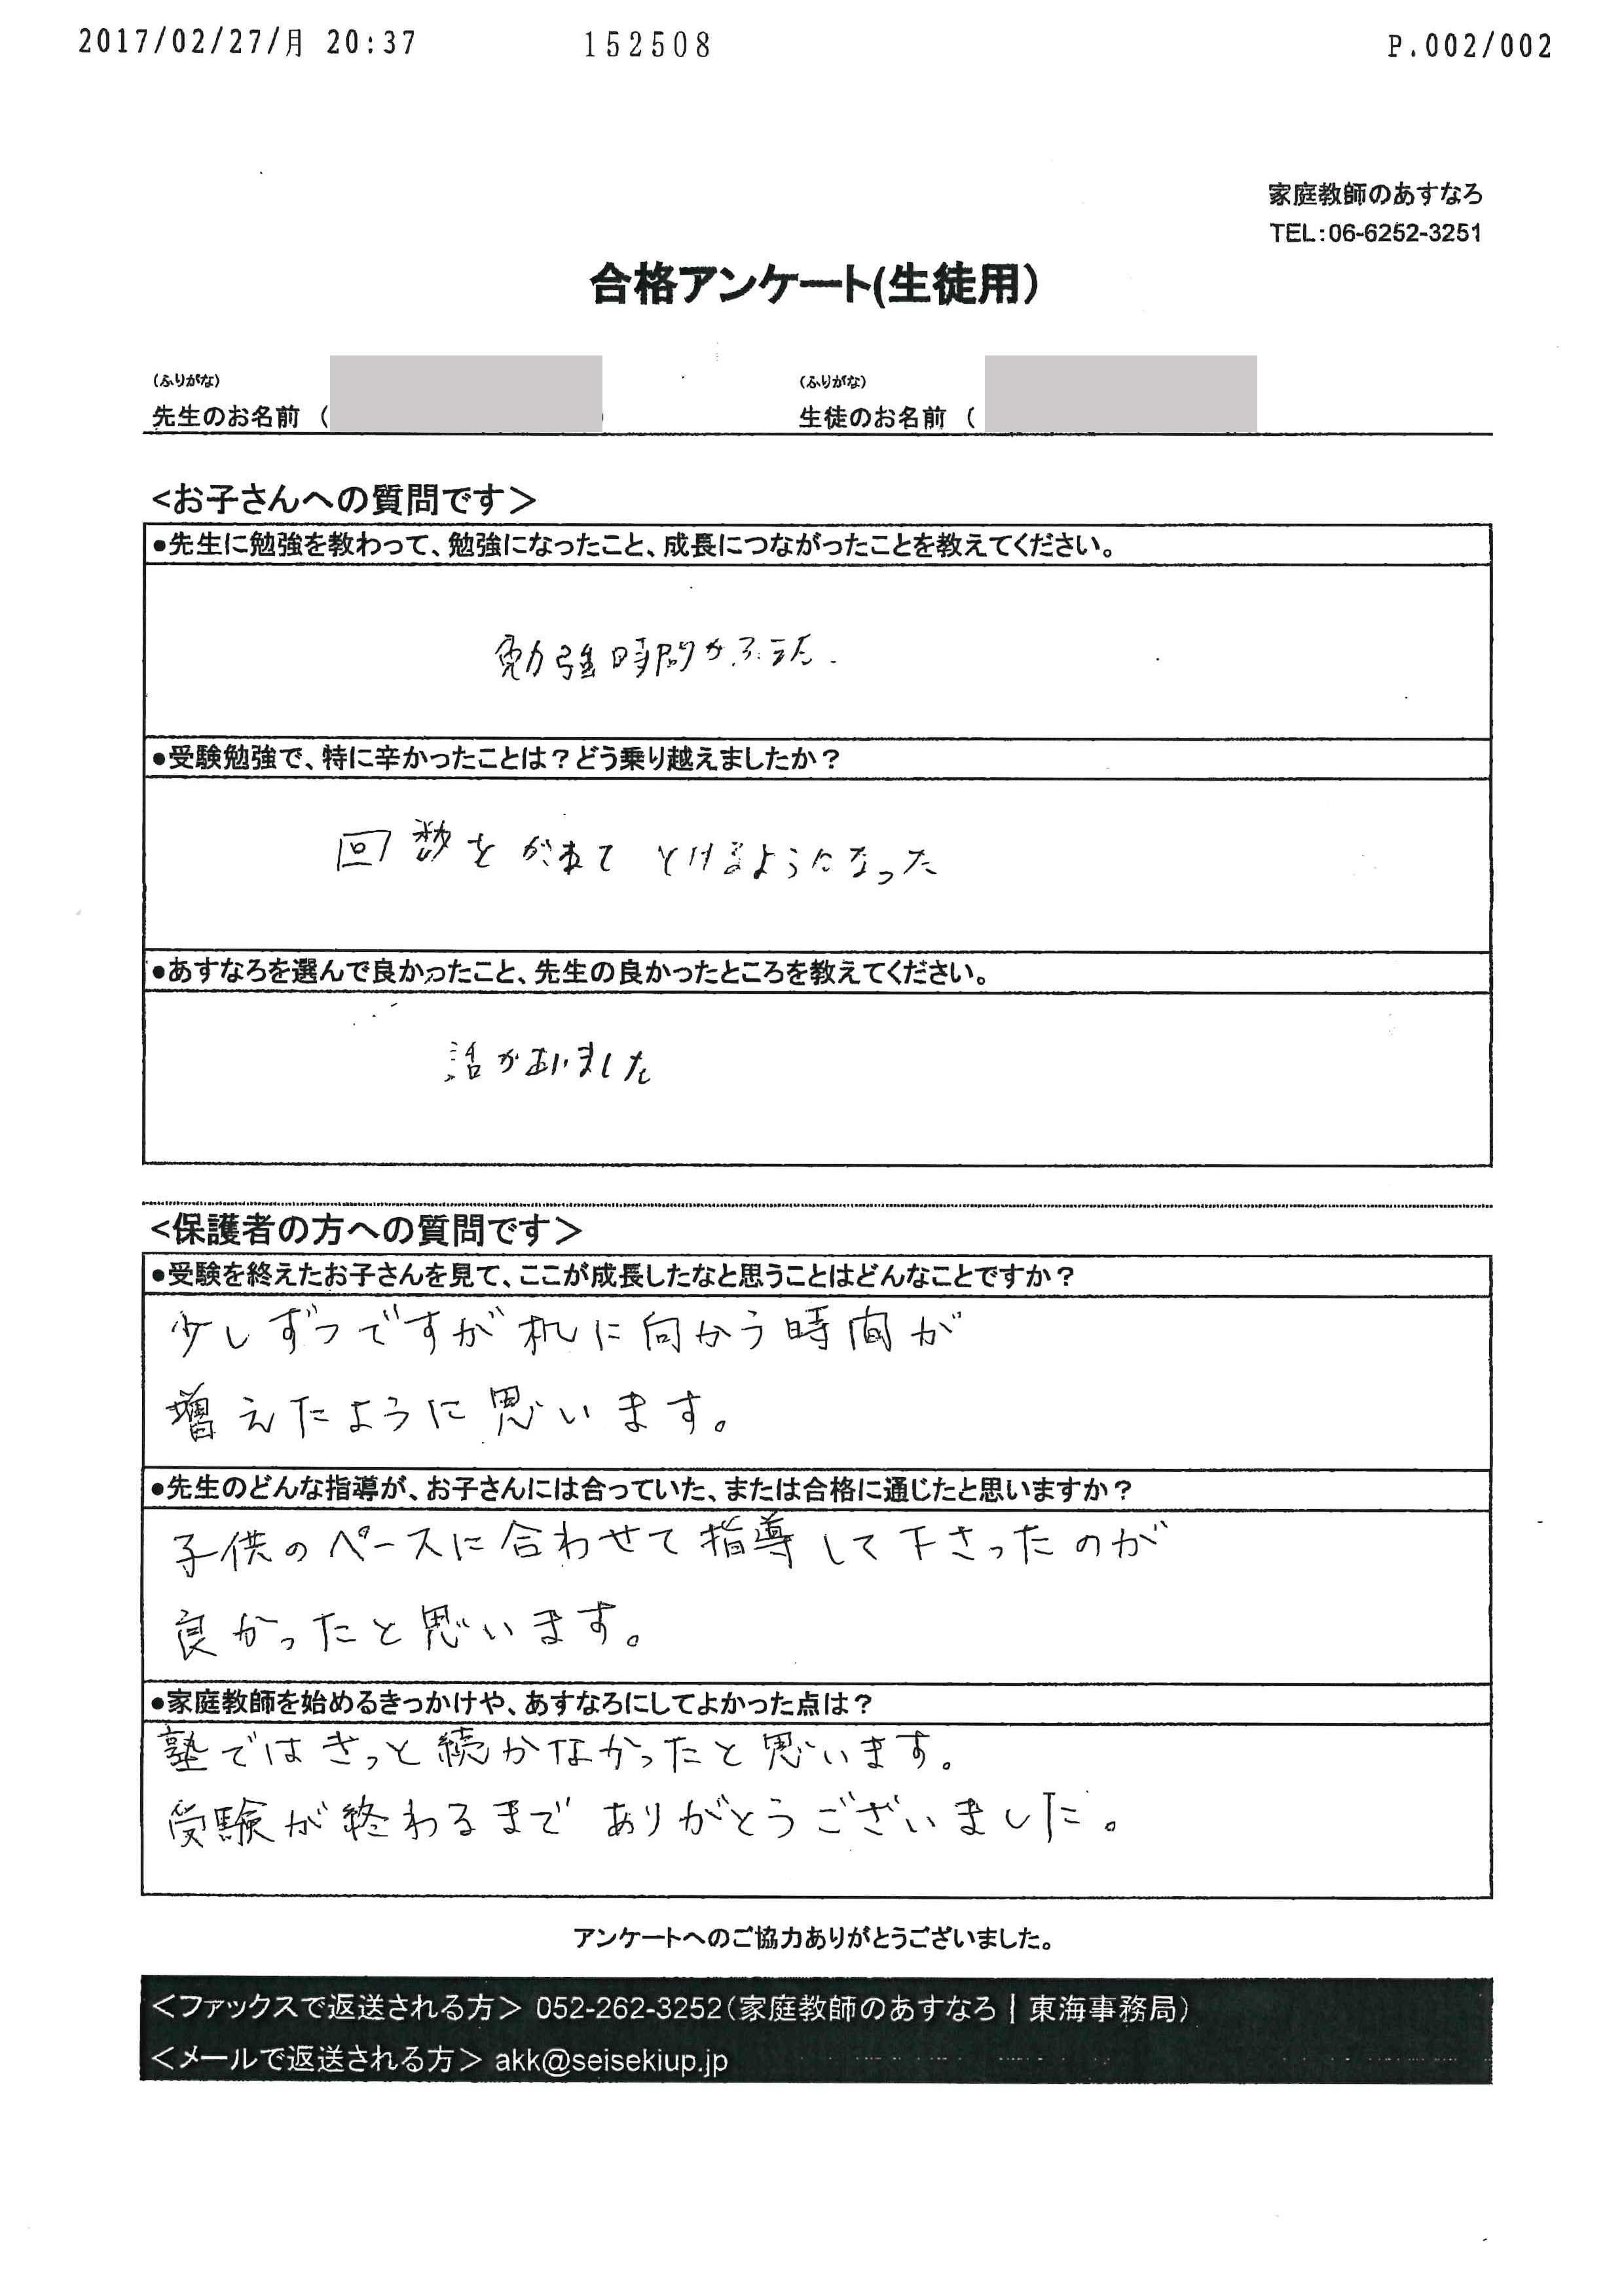 2017/02/27/月 20:37 152508 P.002/002
家庭教師のあすなろ
TEL:06-6252-3251
合格アンケート(生徒用)
(ふりがな) (ふりがな)
先生のお名前 ( ) 生徒のお名前 (
<お子さんへの質問です>
●先生に勉強を教わって、勉強になったこと、成長につながったことを教えてください。
勉強時間がふえた
●受験勉強で、特に辛かったことは?どう乗り越えましたか?
回数をかさねて とけるようになった
●あすなろを選んで良かったこと、先生の良かったところを教えてください。
話があいました
<保護者の方への質問です>
●受験を終えたお子さんを見て、ここが成長したなと思うことはどんなことですか?
少しずつですが机に向かう時間が
増えたように思います。
●先生のどんな指導が、お子さんには合っていた、または合格に通じたと思いますか?
子供のペースに合わせて指導して下さったのが
良かったと思います。
●家庭教師を始めるきっかけや、あすなろにしてよかった点は?
塾ではきっと続かなかったと思います。
受験が終わるまで ありがとうございました。
アンケートへのご協力ありがとうございました。
<ファックスで返送される方> 052-262-3252(家庭教師のあすなろ | 東海事務局)
<メールで返送される方> akk@seisekiup.jp